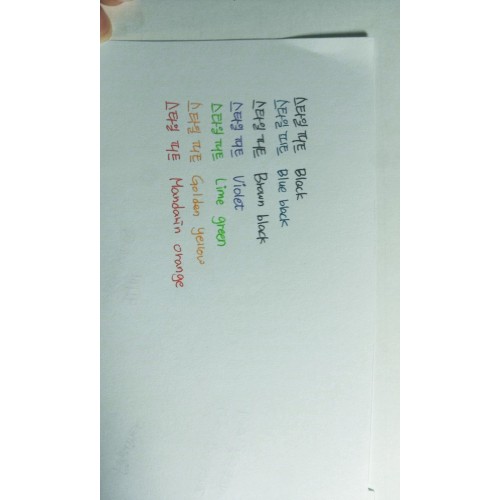 스타일 피트 Black
스타일 피트 Blue black
스타일 피트 Brown black
스타일 피트 Violet
스타일 피트 Lime green
스타일 피트 Golden yellow
스타일 피트 Mandarin orange